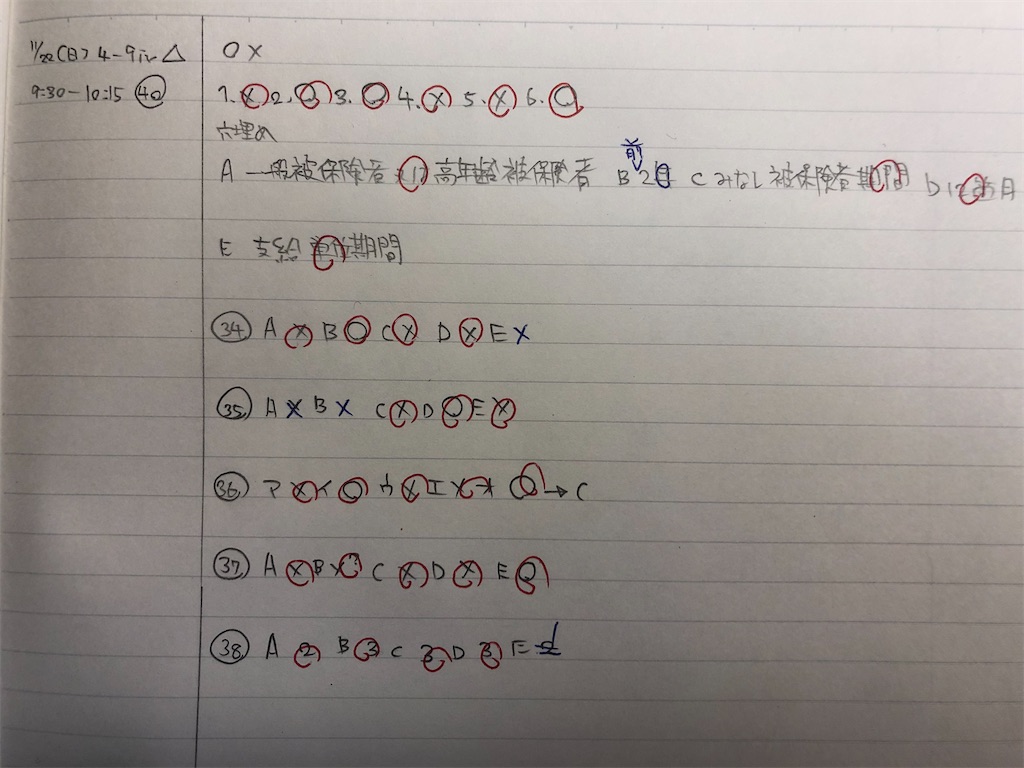 11/22(日) 4-9in △
9:30-10:15 40
○×
1.× 2.○ 3.○ 4.× 5.× 6.○
穴埋め
A 一般被保険者 高年齢被保険者 B 2 前 C みなし被保険者期間 D 1 月
E 支給単位期間
34 A × B ○ C × D × E ×
35 A × B × C × D ○ E ×
36 ア × イ ○ ウ × エ × オ ○→C
37 A × B × C × D × E ○
38 A 2 B 3 C D 3 E